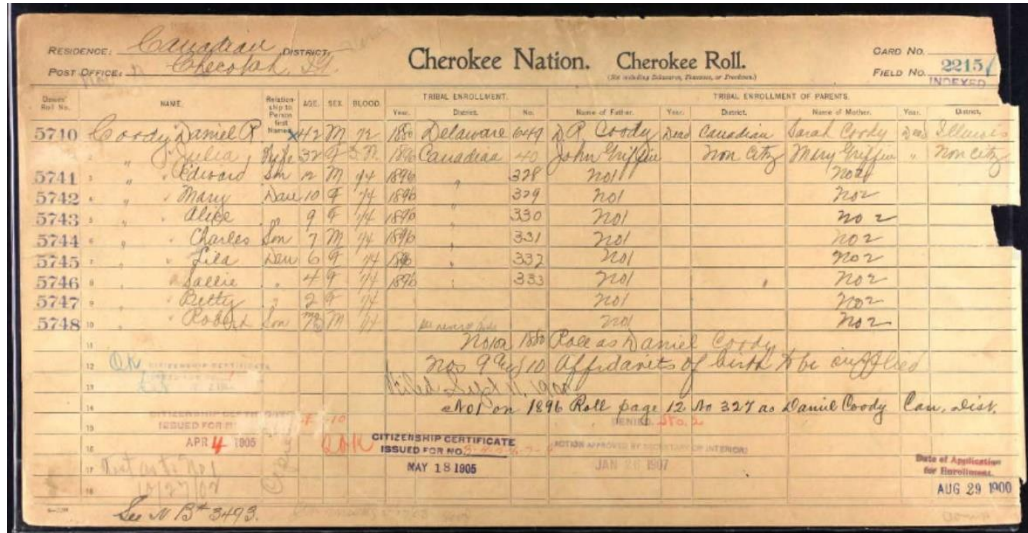 RESIDENCE: Canadian DISTRICT.
POST OFFICE: Checotah, I.T.
Cherokee Nation. Cherokee Roll.
(Not including Delawares, Shawnees, or Freedmen.)
CARD NO.
FIELD NO. 2215
INDEXED
Dawes' Roll No. NAME. Relationship to Person first Named AGE. SEX. BLOOD. TRIBAL ENROLLMENT. TRIBAL ENROLLMENT OF PARENTS.
Year. District. No. Name of Father. Year. District. Name of Mother. Year. District.
5710 Coody, Daniel R 42 M 1/2 1880 Delaware 649 D R Coody Dead Canadian Sarah Coody Dead Illinois
2 " Julia Wife 32 F I.W. 1896 Canadian 40 John Griffin Non Citz Mary Griffin " Non Citz
5741 3 " " Edward Son 12 M 1/4 1896 " 328 No1 No2
5742 4 " " Mary Dau 10 F 1/4 1896 " 329 No1 No2
5743 5 " " Alice " 9 F 1/4 1896 " 330 No1 No 2
5744 6 " " Charles Son 7 M 1/4 1896 " 331 No1 No 2
5745 7 " " Lila Dau 6 F 1/4 1896 " 332 No1 No 2
5746 8 " " Sallie " 4 F 1/4 1896 " 333 No1 No 2
5747 9 " " Betty " 2 F 1/4 No1 No2
5748 10 " " Robert Son M 1/4 No1 No 2
11 No1 on 1880 Roll as Daniel Coody
12 Nos 9 and 10 Affidavits of birth to be supplied
13 Filed Sept 11, 1900
14 No1 on 1896 Roll page 12 No 327 as Daniel Coody Can. Dist.
15 CITIZENSHIP CERTIFICATE ISSUED FOR DENIED No. 2
APR 4 1905
16 CITIZENSHIP CERTIFICATE
ISSUED FOR NO.
ACTION APPROVED BY SECRETARY OF INTERIOR
17 MAY 18 1905
JAN 1907
Date of Application
for Enrollment.
18 AUG 29 1900
See N B# 3493.